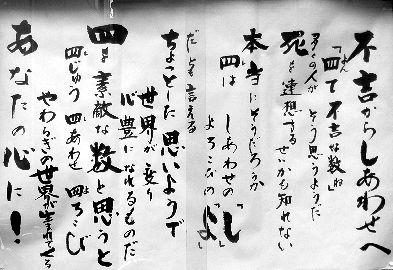 不吉からしあわせへ
「四って不吉な数ね」
多くの人が そう思うようだ
死を連想するせいかも知れない
本当にそうだろうか
四は しあわせの「し」
よろこびの「よ」
だとも言える
ちょことした思いようで
世界が変り
心豊になれるものだ
四を素敵な数と思うと
四じゅう 四あわせ 四ろこび
やわらぎの世界が生まれてくる
あなたの心に!